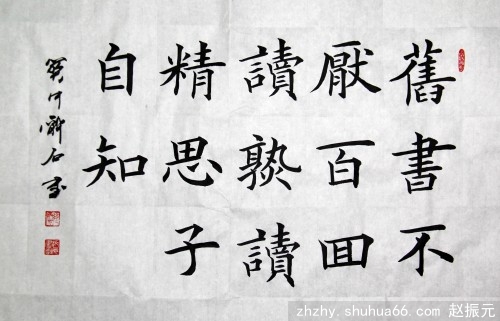 舊書不
厭百囬
讀熟讀
精思子
自知
zhzhy.shuhua66.com 赵振元